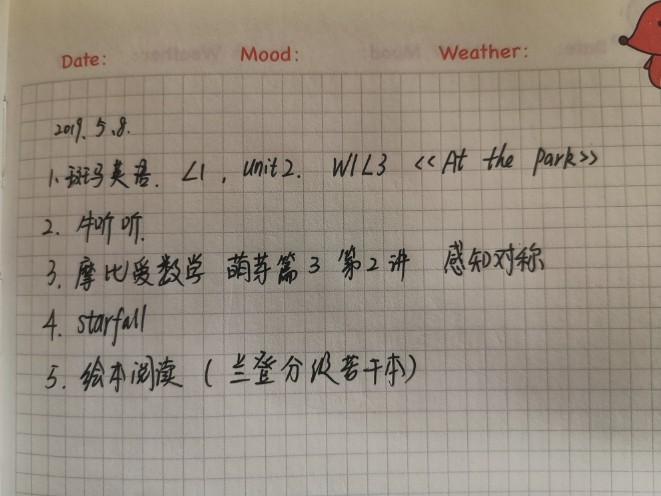 Date: Mood: Weather:
2019.5.8.
1. 斑马英语. L1, Unit2. W1L3 <<At the Park>>
2. 牛听听.
3. 摩比爱数学 萌芽篇3 第2讲 感知对称
4. starfall
5. 绘本阅读 (兰登分级若干本)